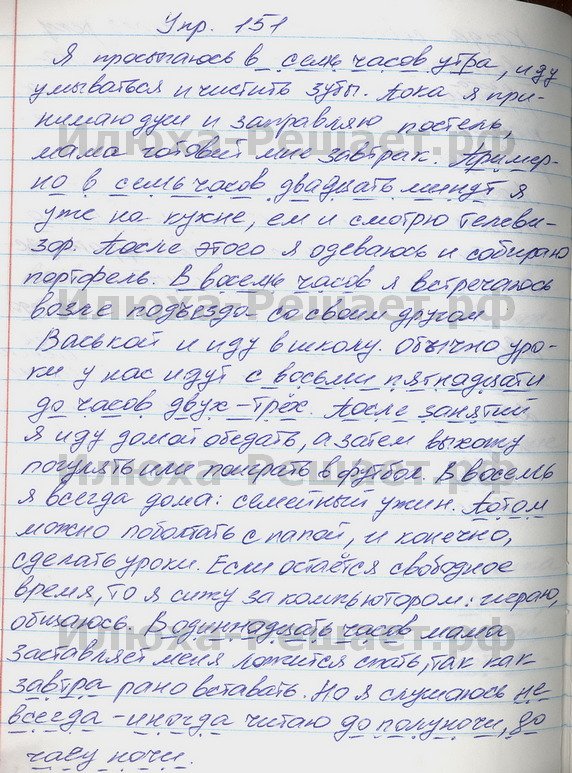 Упр. 151
Я просыпаюсь в семь часов утра, иду
умываться и чистить зубы. Пока я при-
нимаю душ и заправляю постель,
мама готовит мне завтрак. Пример-
но в семь часов двадцать минут я
уже на кухне, ем и смотрю телеви-
зор. После этого я одеваюсь и собираю
портфель. В восемь часов я встречаюсь
возле подъезда со своим другом
Васькой и иду в школу. Обычно уро-
ки у нас идут с восьми пятнадцати
до часов двух-трёх. После занятий
я иду домой обедать, а затем выхожу
погулять или поиграть в футбол. В восемь
я всегда дома: семейный ужин. Потом
можно поболтать с папой, и конечно,
сделать уроки. Если остаётся свободное
время, то я сижу за компьютором: играю,
общаюсь. В одиннадцать часов мама
заставляет меня ложится спать, так как
завтра рано вставать. Но я слушаюсь не
всегда - иногда читаю до полуночи, до
часу ночи.
Илюха-Решает.рф
Илюха-Решает.рф
Илюха-Решает.рф
Илюха-Решает.рф